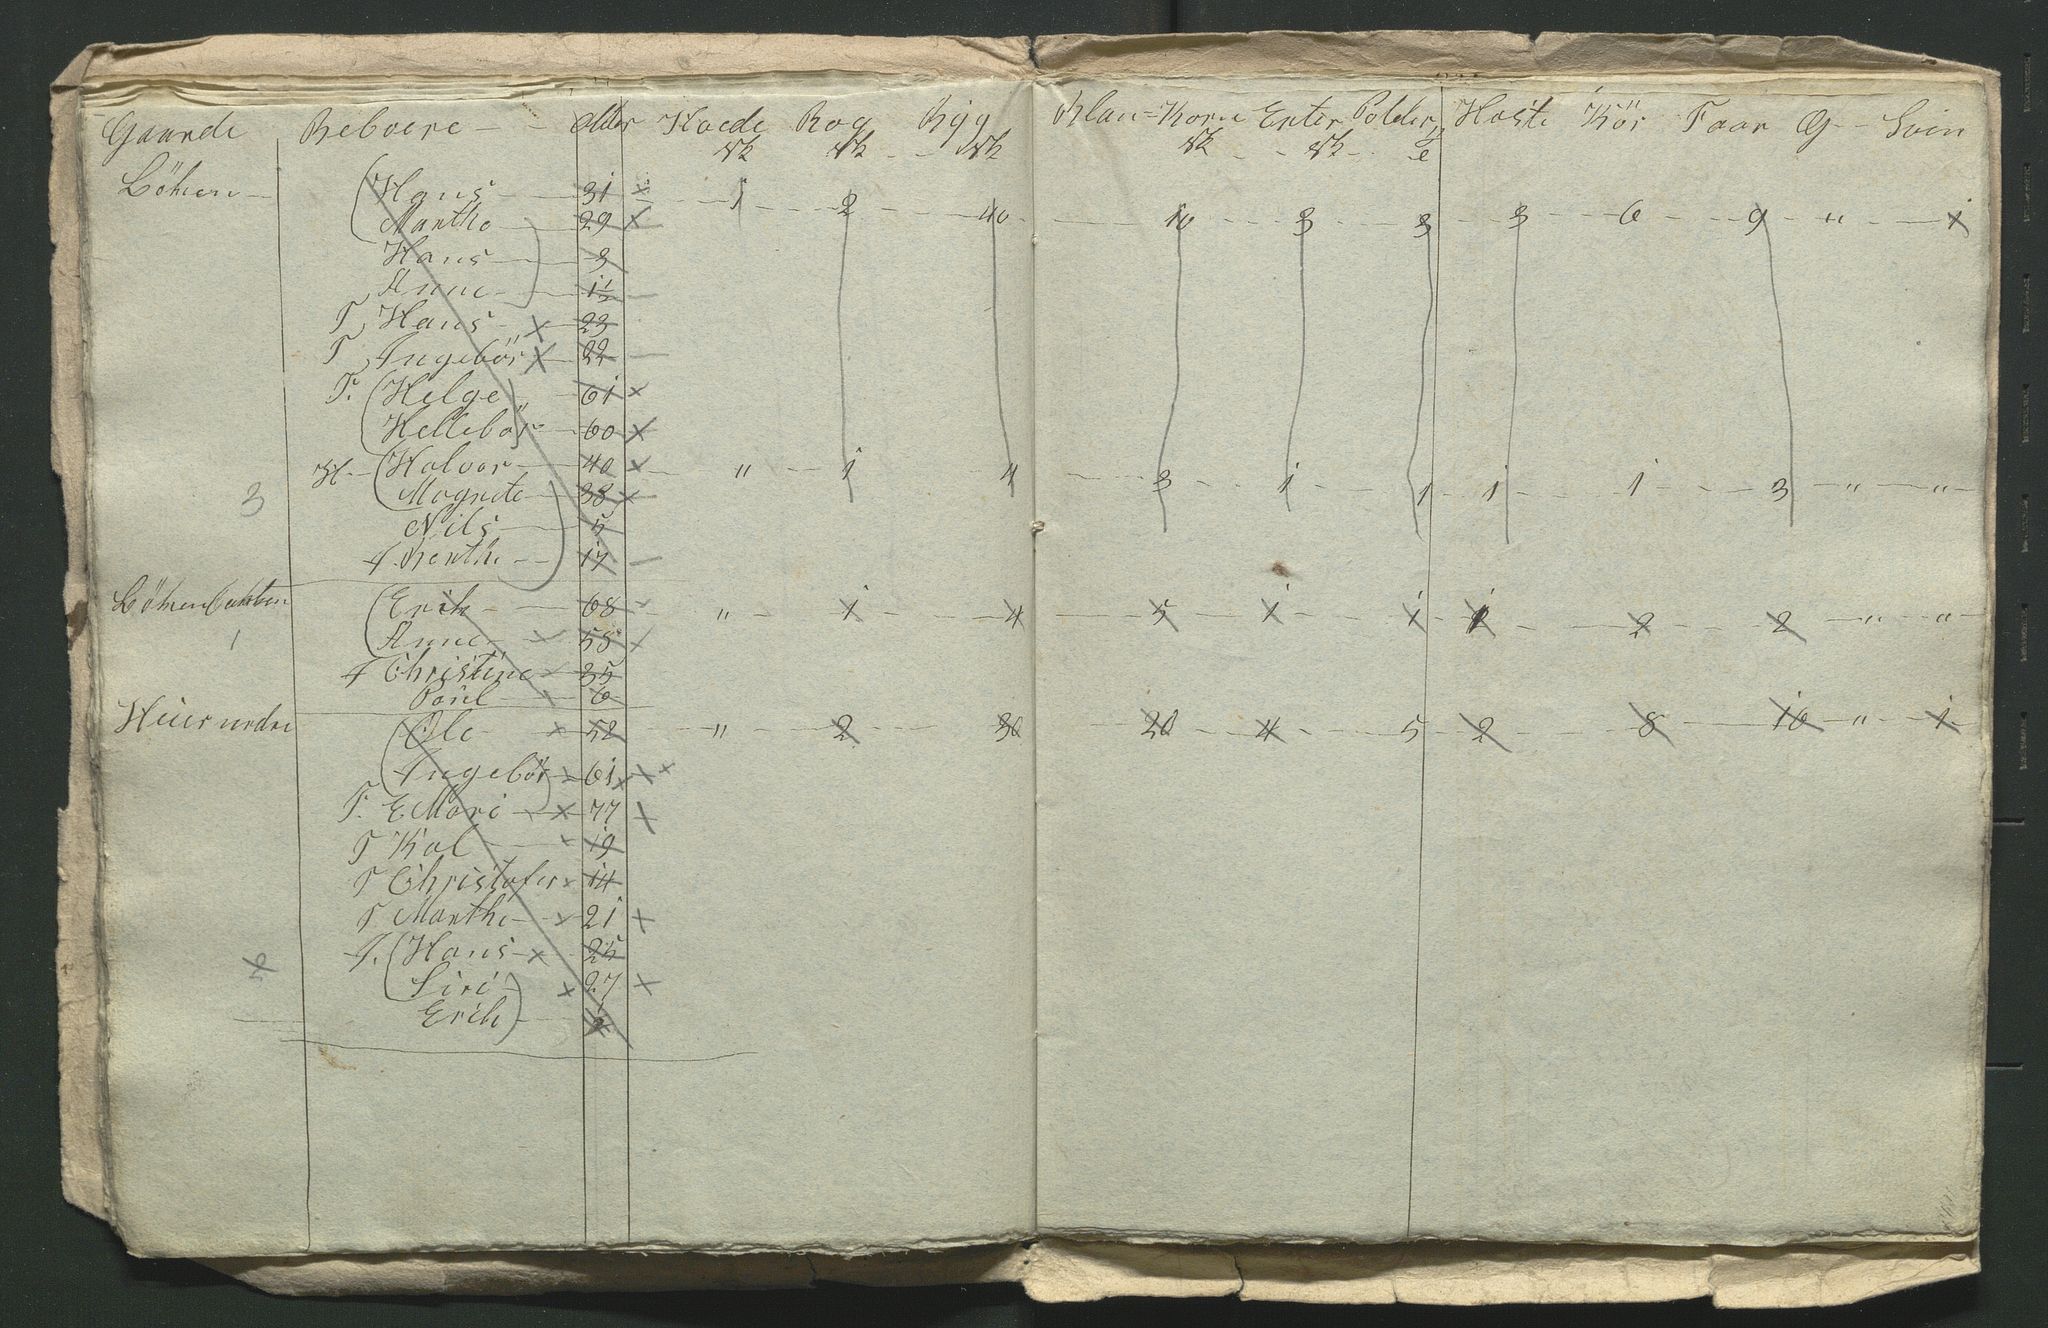 Gaarde Beboere Alder Hvede Rog Byg Blan-Korn Erter Poteter Heste Kör Faar G Svin
Löken Hans 31 1 2 40 10 3 3 3 6 9 " 1
Marthe 29
Hans 3
Anne 1½
T, Hans 23
T, Ingebör 22
F. Helge 61
Hellebör 60
H Halvor 40 " 1 4 3 1 1 1 1 3 " "
3 Magnete 38
Nils 5
f. Berthe 17
Lökenbakken Erik 68 " 1 4 5 1 1 1 2 2 " "
1 Anne 58
f Christine 35
Poül 6
Heier nerdre Ole 52 " 2 30 20 4 5 2 8 10 " 1
Ingebör 61
F. E Mari 77
T Kal 19
T Christofer 14
T Marthe 21
I. Hans 25
Siri 27
Erik